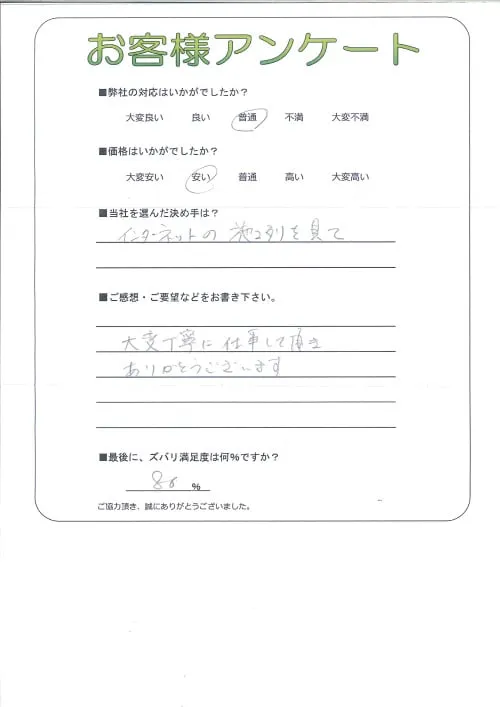 お客様アンケート
■弊社の対応はいかがでしたか？
大変良い 良い 普通 不満 大変不満
■価格はいかがでしたか？
大変安い 安い 普通 高い 大変高い
■当社を選んだ決め手は？
インターネットの を見て
■ご感想・ご要望などをお書き下さい。
大変丁寧に仕事して頂き
ありがとうございます
■最後に、ズバリ満足度は何%ですか？
80 %
ご協力頂き、誠にありがとうございました。